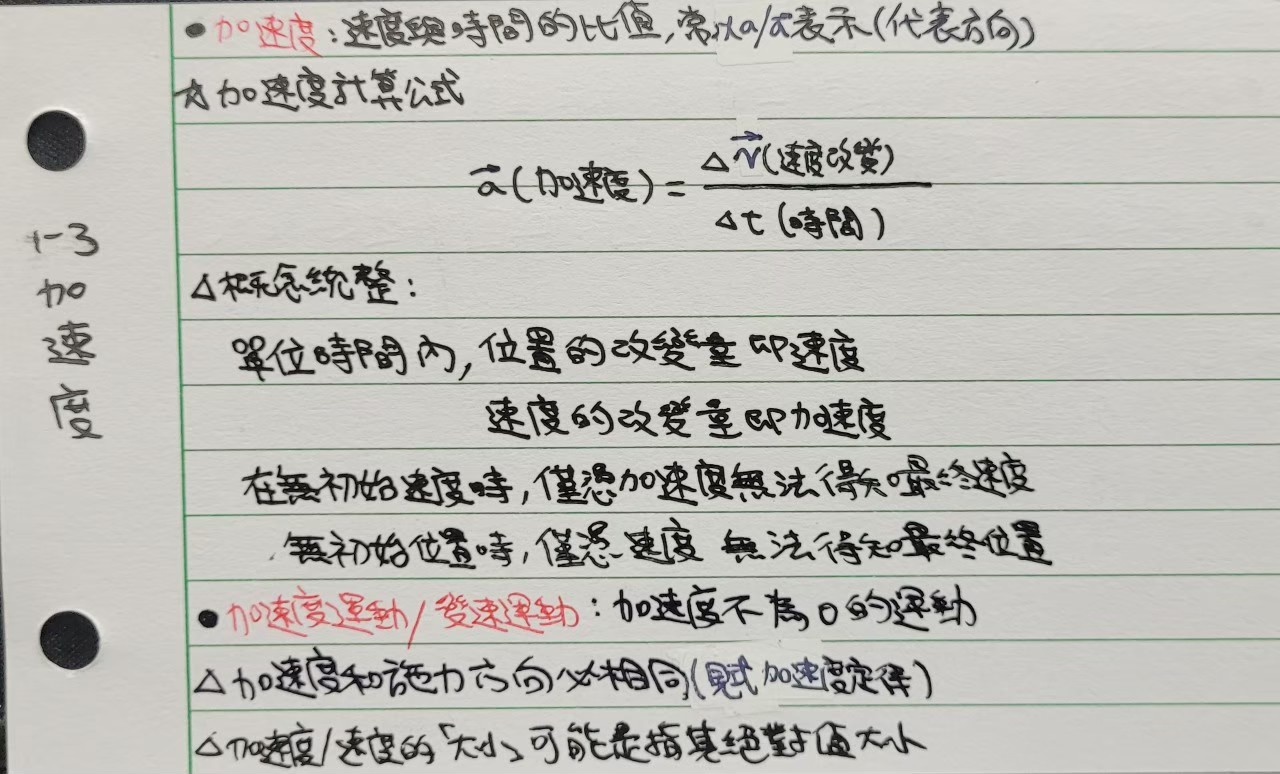 1-3 加速度
●加速度:速度與時間的比值,常以a/a⃗表示(代表方向)
☆加速度計算公式
a⃗(加速度)=Δv⃗(速度改變)/Δt(時間)
△概念統整:
單位時間內,位置的改變量即速度
速度的改變量即加速度
在無初始速度時,僅憑加速度無法得知最終速度
無初始位置時,僅憑速度無法得知最終位置
●加速度運動/變速運動:加速度不為0的運動
△加速度和施力方向必相同(見 加速度定律)
△加速度/速度的「大小」可能是指其絕對值大小